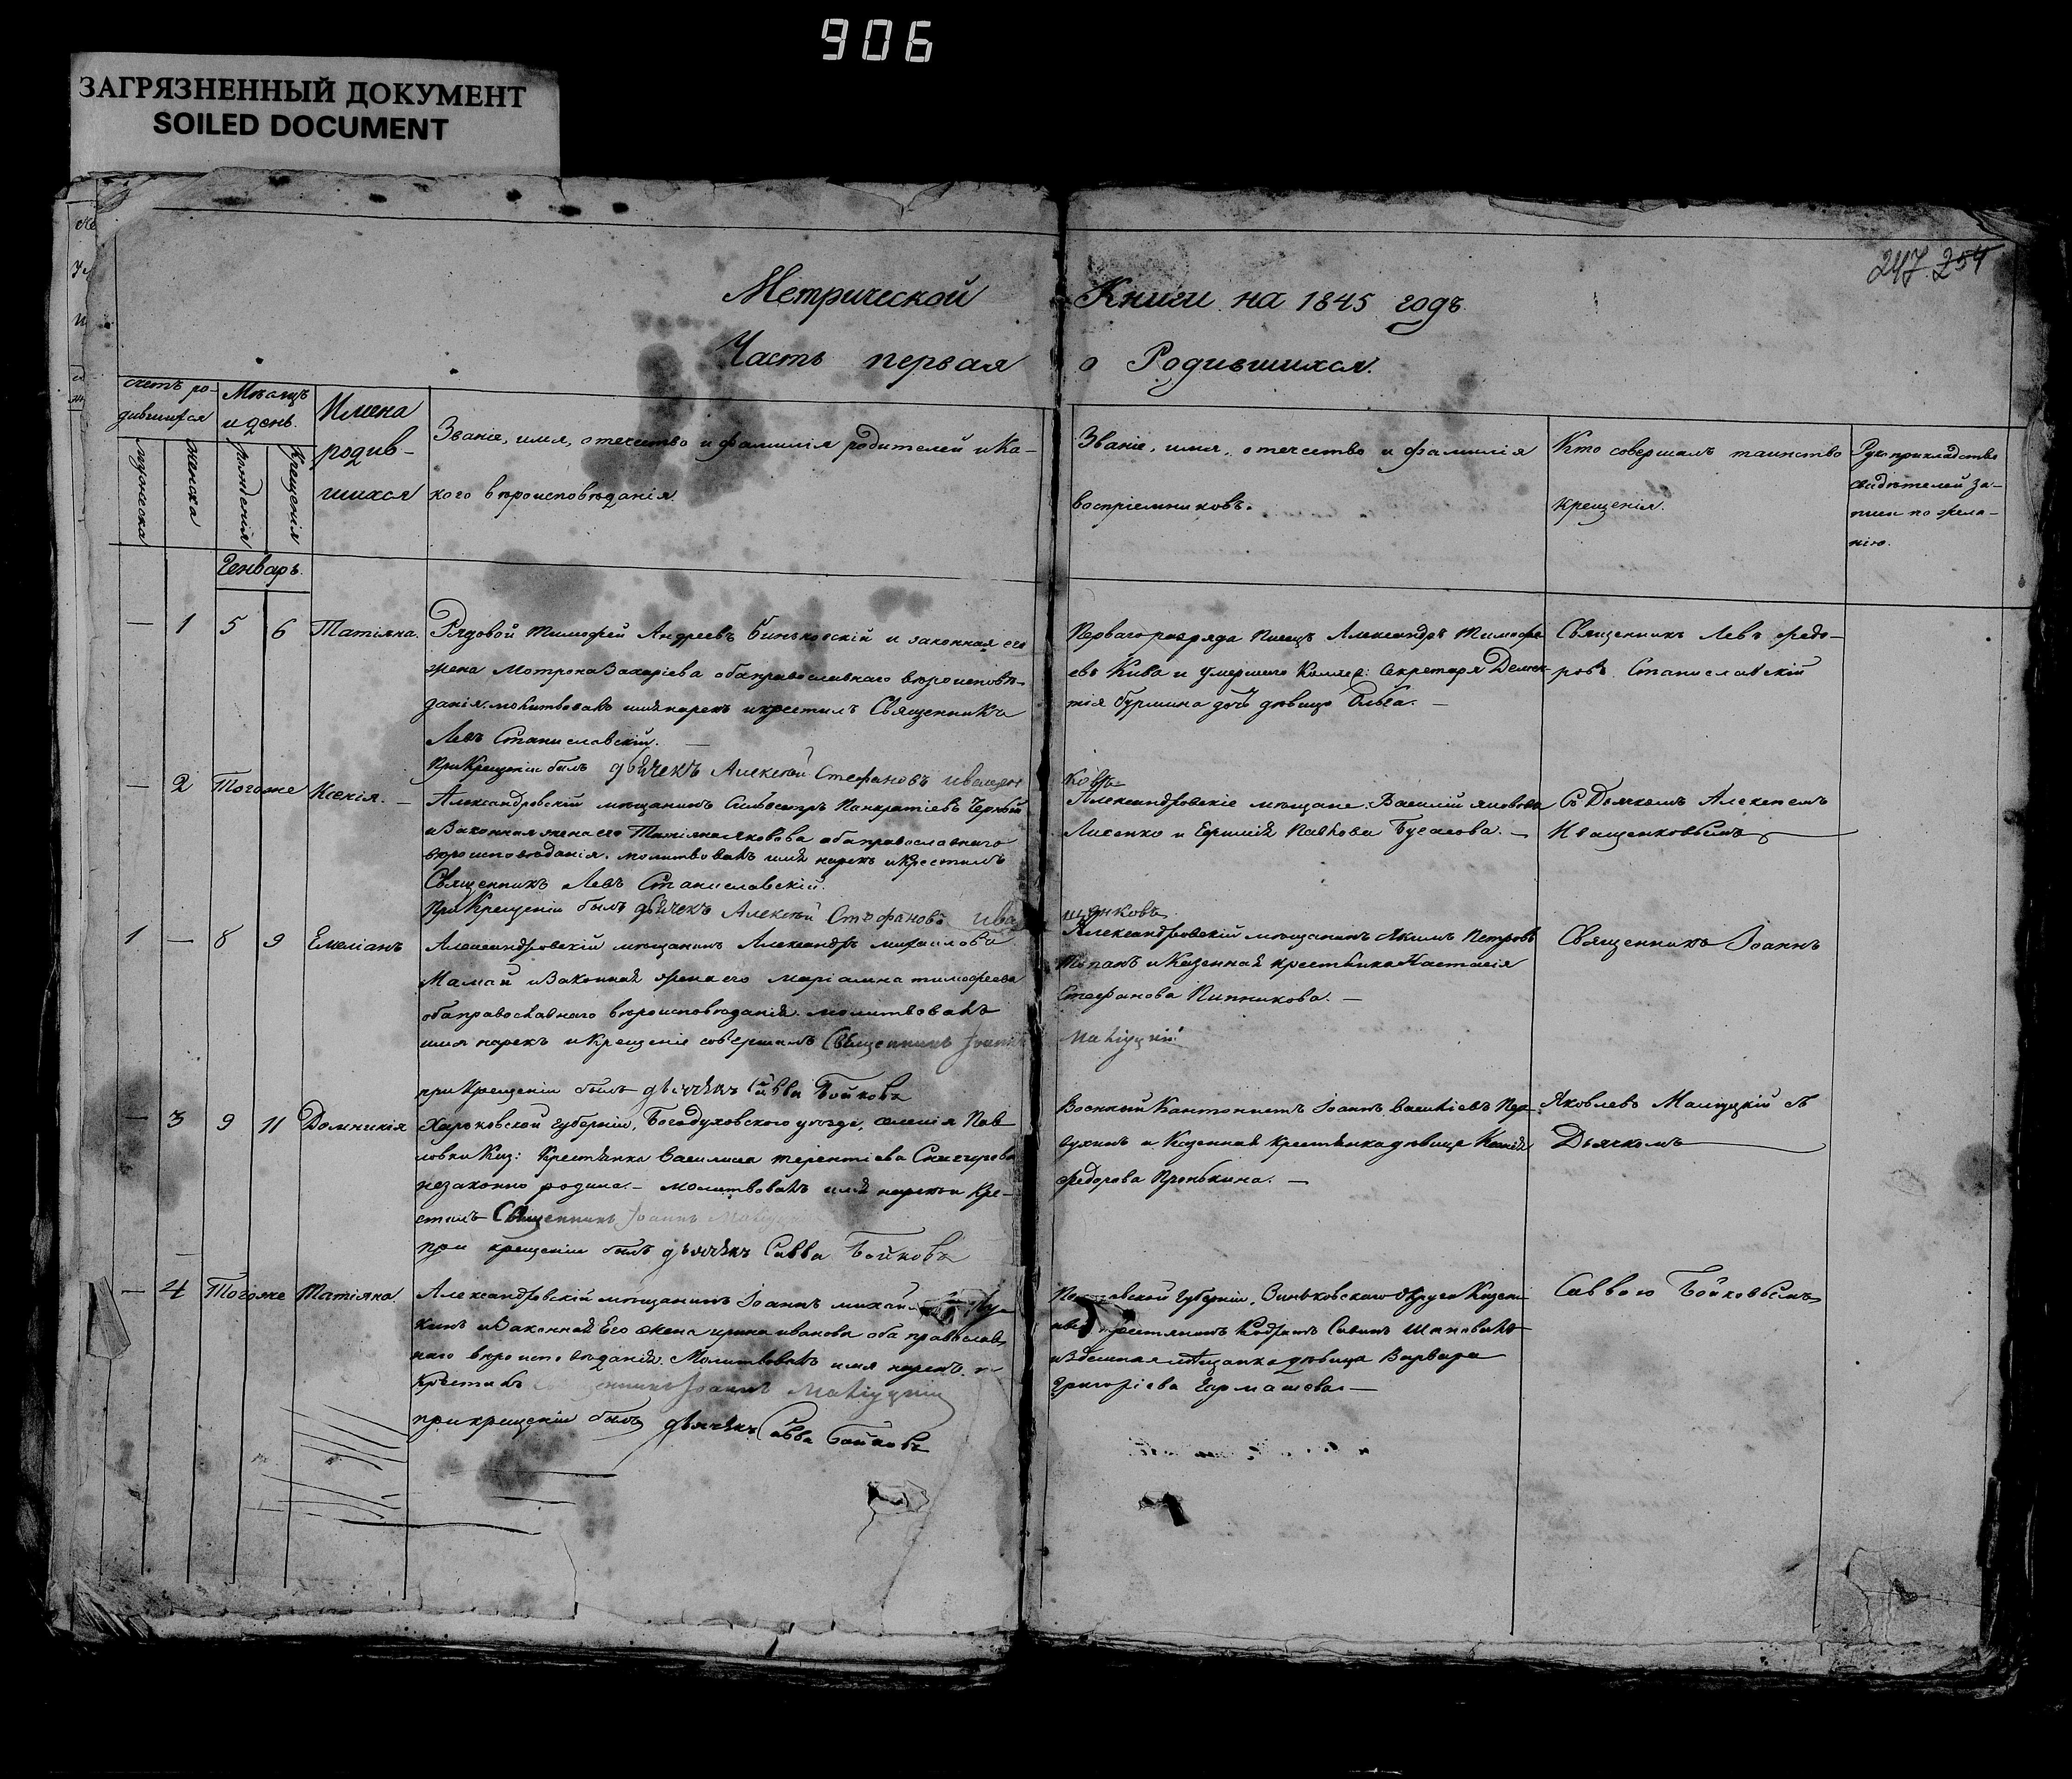 906
ЗАГРЯЗНЕННЫЙ ДОКУМЕНТ
SOILED DOCUMENT
247 254
Метрической Книги на 1845 годъ
Часть первая о Родившихся.
счетъ ро-
дившихся
мужеска
женска
Мѣсяцъ
и день.
рожденія
крещенія
Имена
родив-
шихся
Званіе, имя, отечество и фамилія родителей и ка-
кого вѣроисповѣданія.
Званіе, имя, отечество и фамилія
воспріемниковъ.
Кто совершалъ таинство
крещенія.
Рукоприкладство
свидѣтелей за-
писи по жела-
нію.
Генварь.
— 1 5 6 Татіяна.
Рядовой Тимофей Андреевъ и законная его
жена Мотрона Захаріева оба православнаго вѣроисповѣ-
данія. молитвовалъ имя нарекъ и крестилъ Священникъ
Левъ Станиславскій. —
При Крещеніи былъ дьячекъ Алексѣй Стефановъ Иващен
ковъ
Перваго разряда Писецъ Александръ Тимофе
евъ Кива и умершаго Коллеж: Секретаря Демен-
тія Бурмина дочь дѣвица Ольга. —
Священникъ Левъ Федо-
ровъ Станиславскій
— 2 Тогоже Ксенія. —
Александровскій мѣщанинъ Сильвестръ Панкратіевъ Черный
и Законная жена его Татіяна Яковова оба православнаго
вѣроисповѣданія. молитвовалъ имя нарекъ и крестилъ
Священникъ Левъ Станиславскій.
При Крещеніи былъ дьячекъ Алексѣй Стефановъ Ива
щенковъ
Александровскіе мѣщане: Василій Яковова
Лисенко и Павлова —
Съ Дьячкомъ Алексѣемъ
Иващенковымъ
1 — 8 9 Емеліанъ
Александровскій мѣщанинъ Александръ Михайловъ
Мамай и Законная жена его Маріамна Тимофеева
оба православнаго вѣроисповѣданія. молитвовалъ
имя нарекъ и крещеніе совершилъ Священникъ Іоаннъ
при крещеніи былъ дьячекъ Савва Бойковъ
Александровскій мѣщанинъ Якимъ Петровъ
и Казенная крестьянка Настасія
Стефанова —
Священникъ Іоаннъ
— 3 9 11 Домникія
Харьковской губерніи, Богодуховскаго уѣзда, селенія Пав
ловки Каз: Крестьянка Василиса Терентіева
незаконно родила. — молитвовалъ имя нарекъ и кре-
стилъ Священникъ Іоаннъ
при крещеніи былъ дьячекъ Савва Бойковъ
Военный Кантонистъ Іоаннъ Василіевъ
и Казенная Крестьянка дѣвица Ксенія
Федорова Пронькина. —
Яковлевъ съ
Дьячкомъ
— 4 Тогоже Татіяна.
Александровскій мѣщанинъ Іоаннъ
и Законная Его жена Ирина Иванова оба православ
наго вѣроисповѣданія. Молитвовалъ имя нарекъ и
крестилъ Іоаннъ
при крещеніи былъ дьячекъ Савва Бойковъ
Губерніи, Зиньковскаго Округа Казен
Савинъ
и здешная мѣщанка дѣвица Варвара
Григоріева —
Саввою Бойковымъ